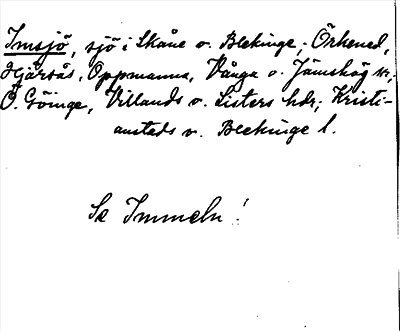 Imsjö, sjö i Skåne o. Blekinge; Örkened,
Hjärsås, Oppmanna, Vånga o. Jämshög sr;
Ö. Göinge, Villands o. Listers hdr; Kristi-
anstads o. Blekinge l.
Se Immeln!